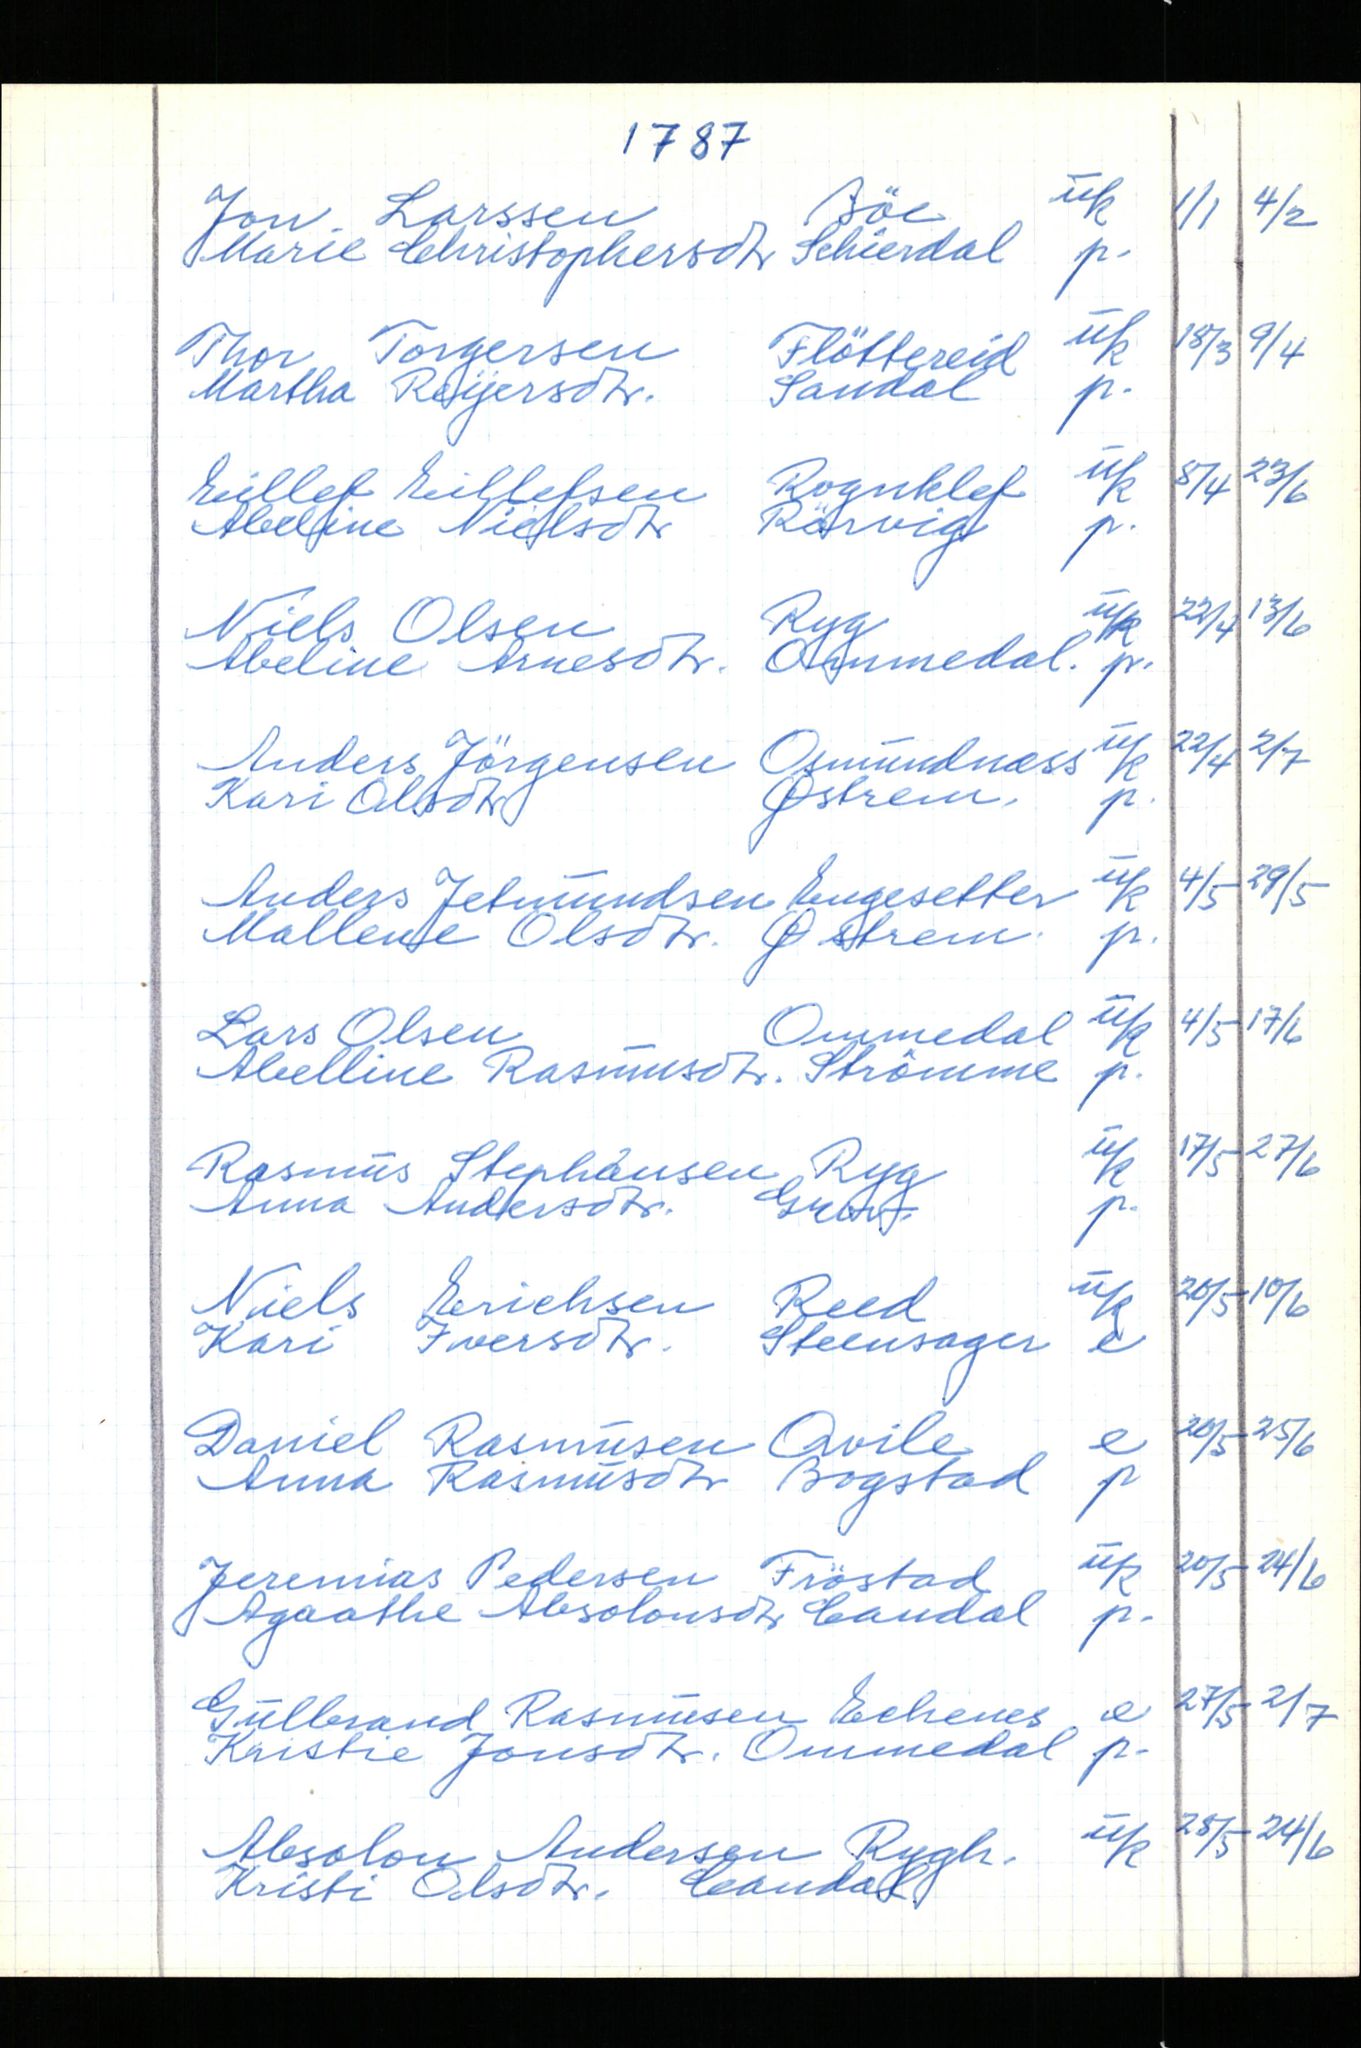 1787
Jon Larssen Böe uk 1/1 4/2
Marie Christophersdtr Schierdal p.
Thor Torgersen Flöttereid uk 18/3 9/4
Martha Reijersdtr. Sandal p.
Eillef Eillefsen Rognklef uk 8/4 23/6
Abeline Nielsdtr Rörvig p.
Niels Olsen Ryg uk 22/4 13/6
Abeline Arnesdtr. Ommedal. p.
Anders Jörgensen Osmundnæss uk 22/4 2/7
Kari Olsdtr Østrem. p.
Anders Jetmundsen Engesetter uk 4/5 29/5
Mallene Olsdtr. Østrem. p.
Lars Olsen Ommedal uk 4/5 17/6
Abelline Rasmusdtr. Strömme p.
Rasmus Stephansen Ryg uk 17/5 27/6
Anna Andersdtr. p.
Niels Erichsen Reed uk 20/5 10/6
Kari Iversdtr. Steensager e
Daniel Rasmusen Qvile e 20/5 25/6
Anna Rasmusdtr Bogstad p
Jeremias Pedersen Fröstad uk 20/5 24/6
Agaathe Absolonsdtr Candal p.
Gulbrand Rasmusen Echenes e 27/5 2/7
Kristie Jonsdtr. Ommedal p.
Absolon Andersen Rygh. uk 28/5 24/6
Kristi Olsdtr. Candal